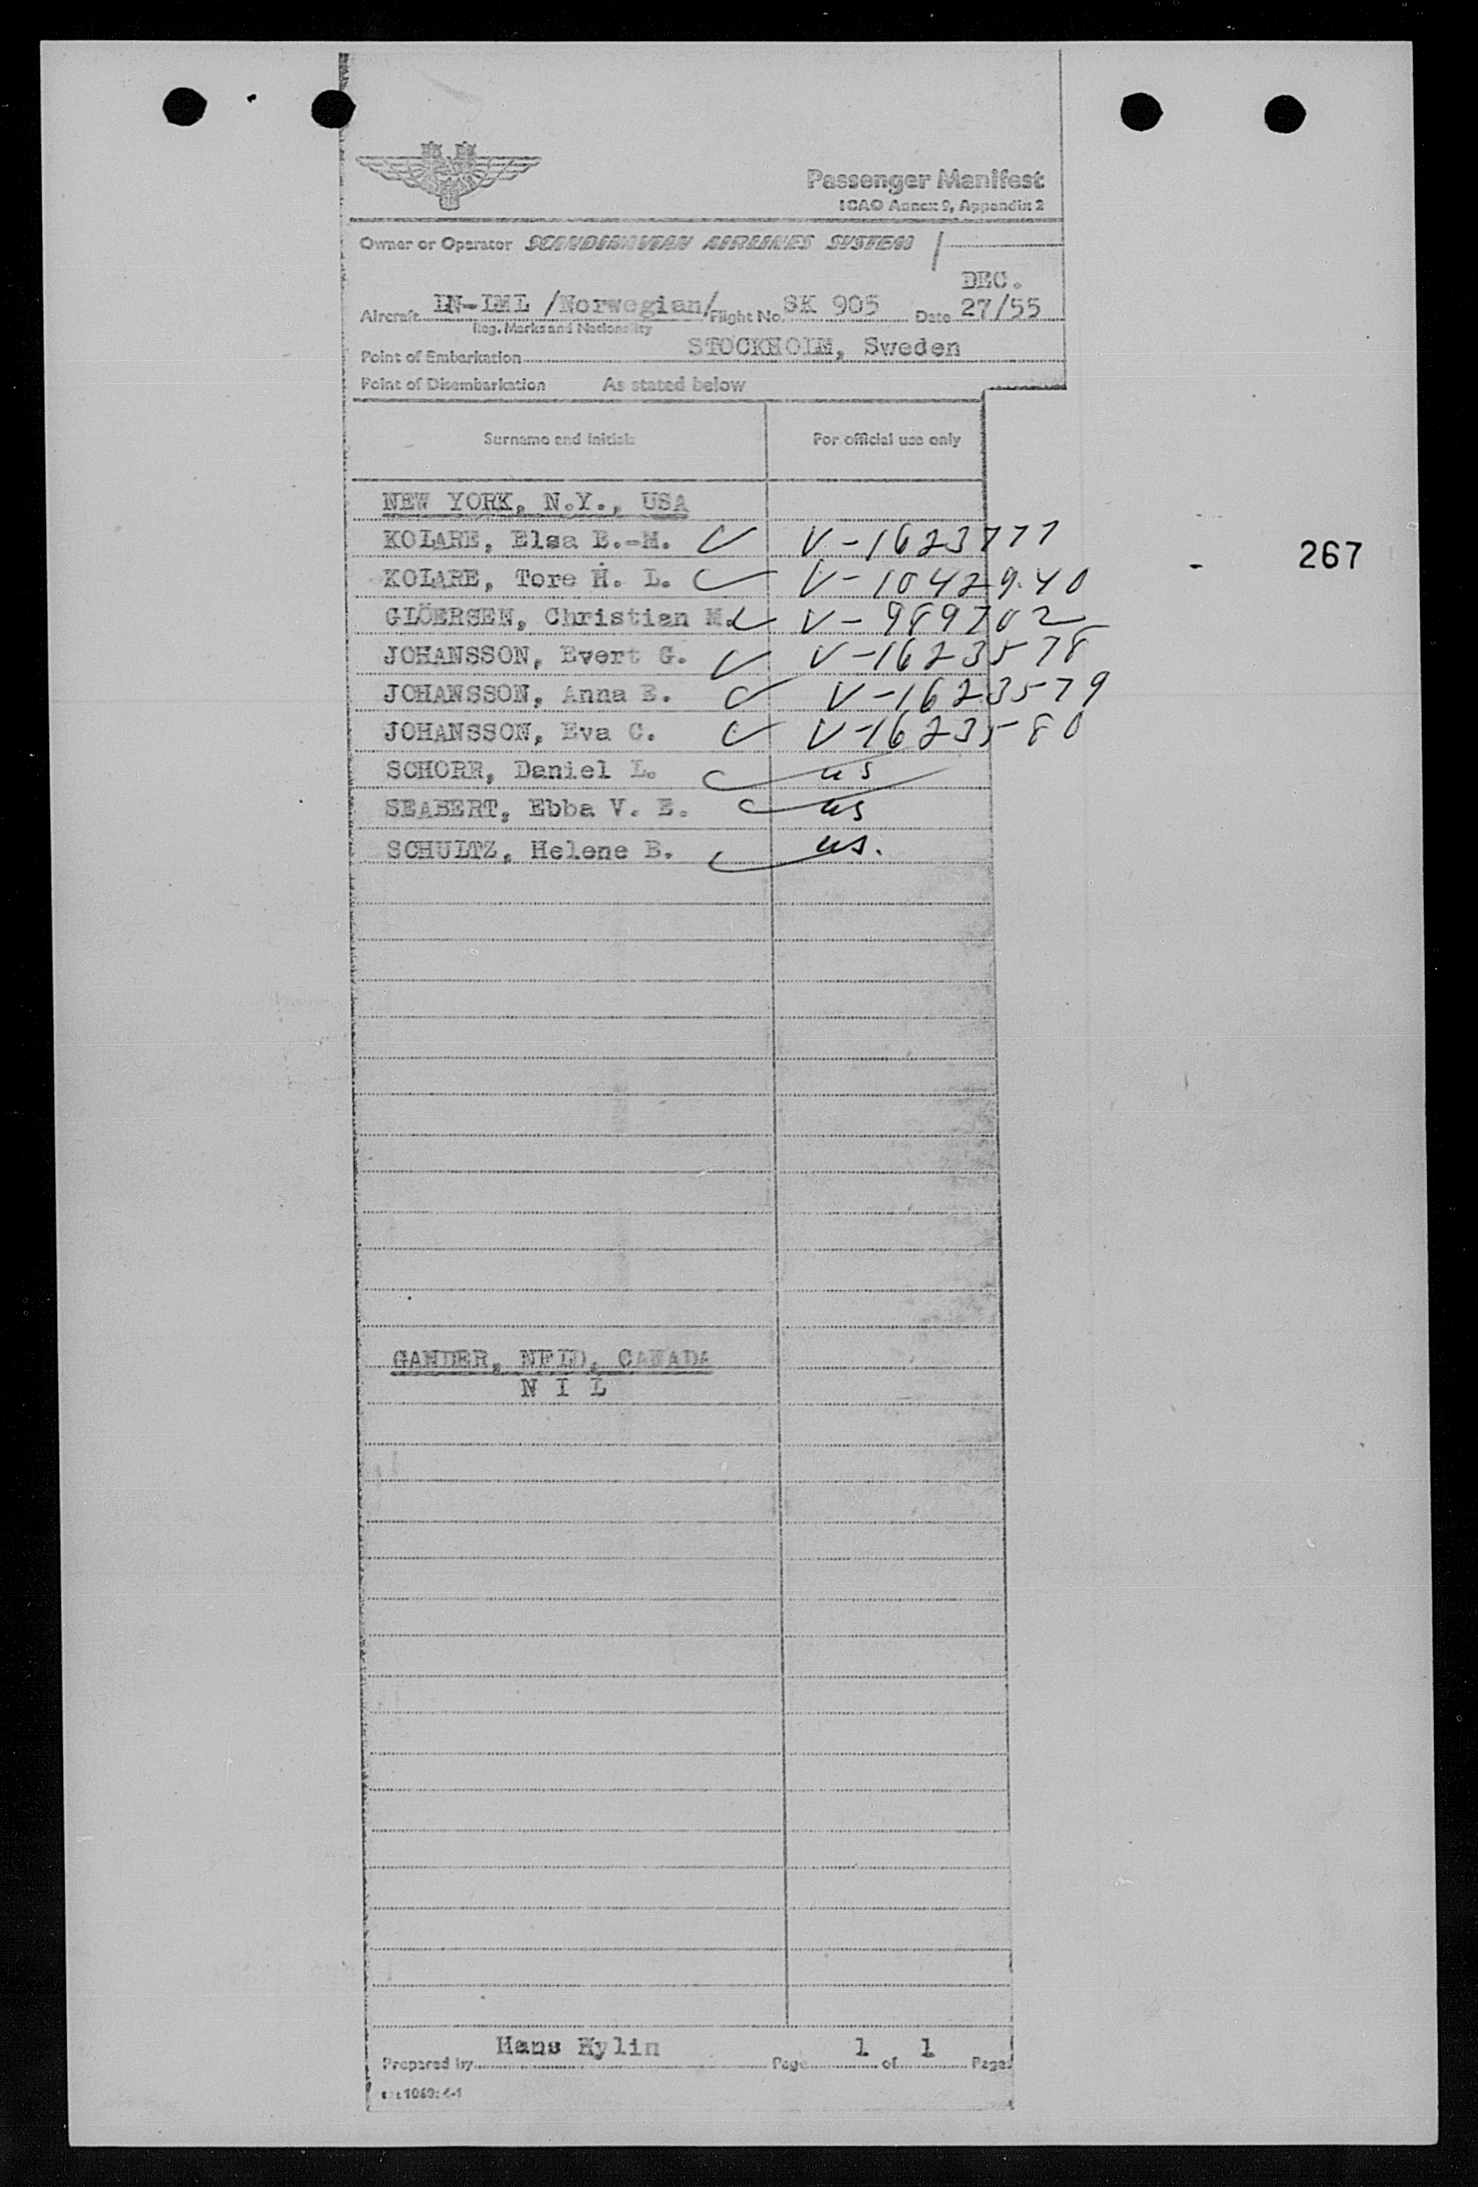 Passenger Manifest
ICAO Annex 9, Appendix 2
Owner or Operator SCANDINAVIAN AIRLINES SYSTEM /
DEC.
Aircraft LN-LML /Norwegian/ Flight No. SK 905 Date 27/55
Reg. Marks and Nationality
Point of Embarkation STOCKHOLM, Sweden
Point of Disembarkation As stated below
Surname and initials For official use only
NEW YORK, N.Y., USA
KOLARE, Elsa E.-M. V-1623777
KOLARE, Tore H. L. V-1042940
GLÖERSEN, Christian M. V-989702
JOHANSSON, Evert G. V-1623578
JOHANSSON, Anna E. V-1623579
JOHANSSON, Eva C. V-1623580
SCHORR, Daniel L. us
SEABERT, Ebba V. E. us
SCHULTZ, Helene B. us.
267
GANDER, NFLD, CANADA
N I L
Prepared by Hans Hylin Page 1 of 1 Pages